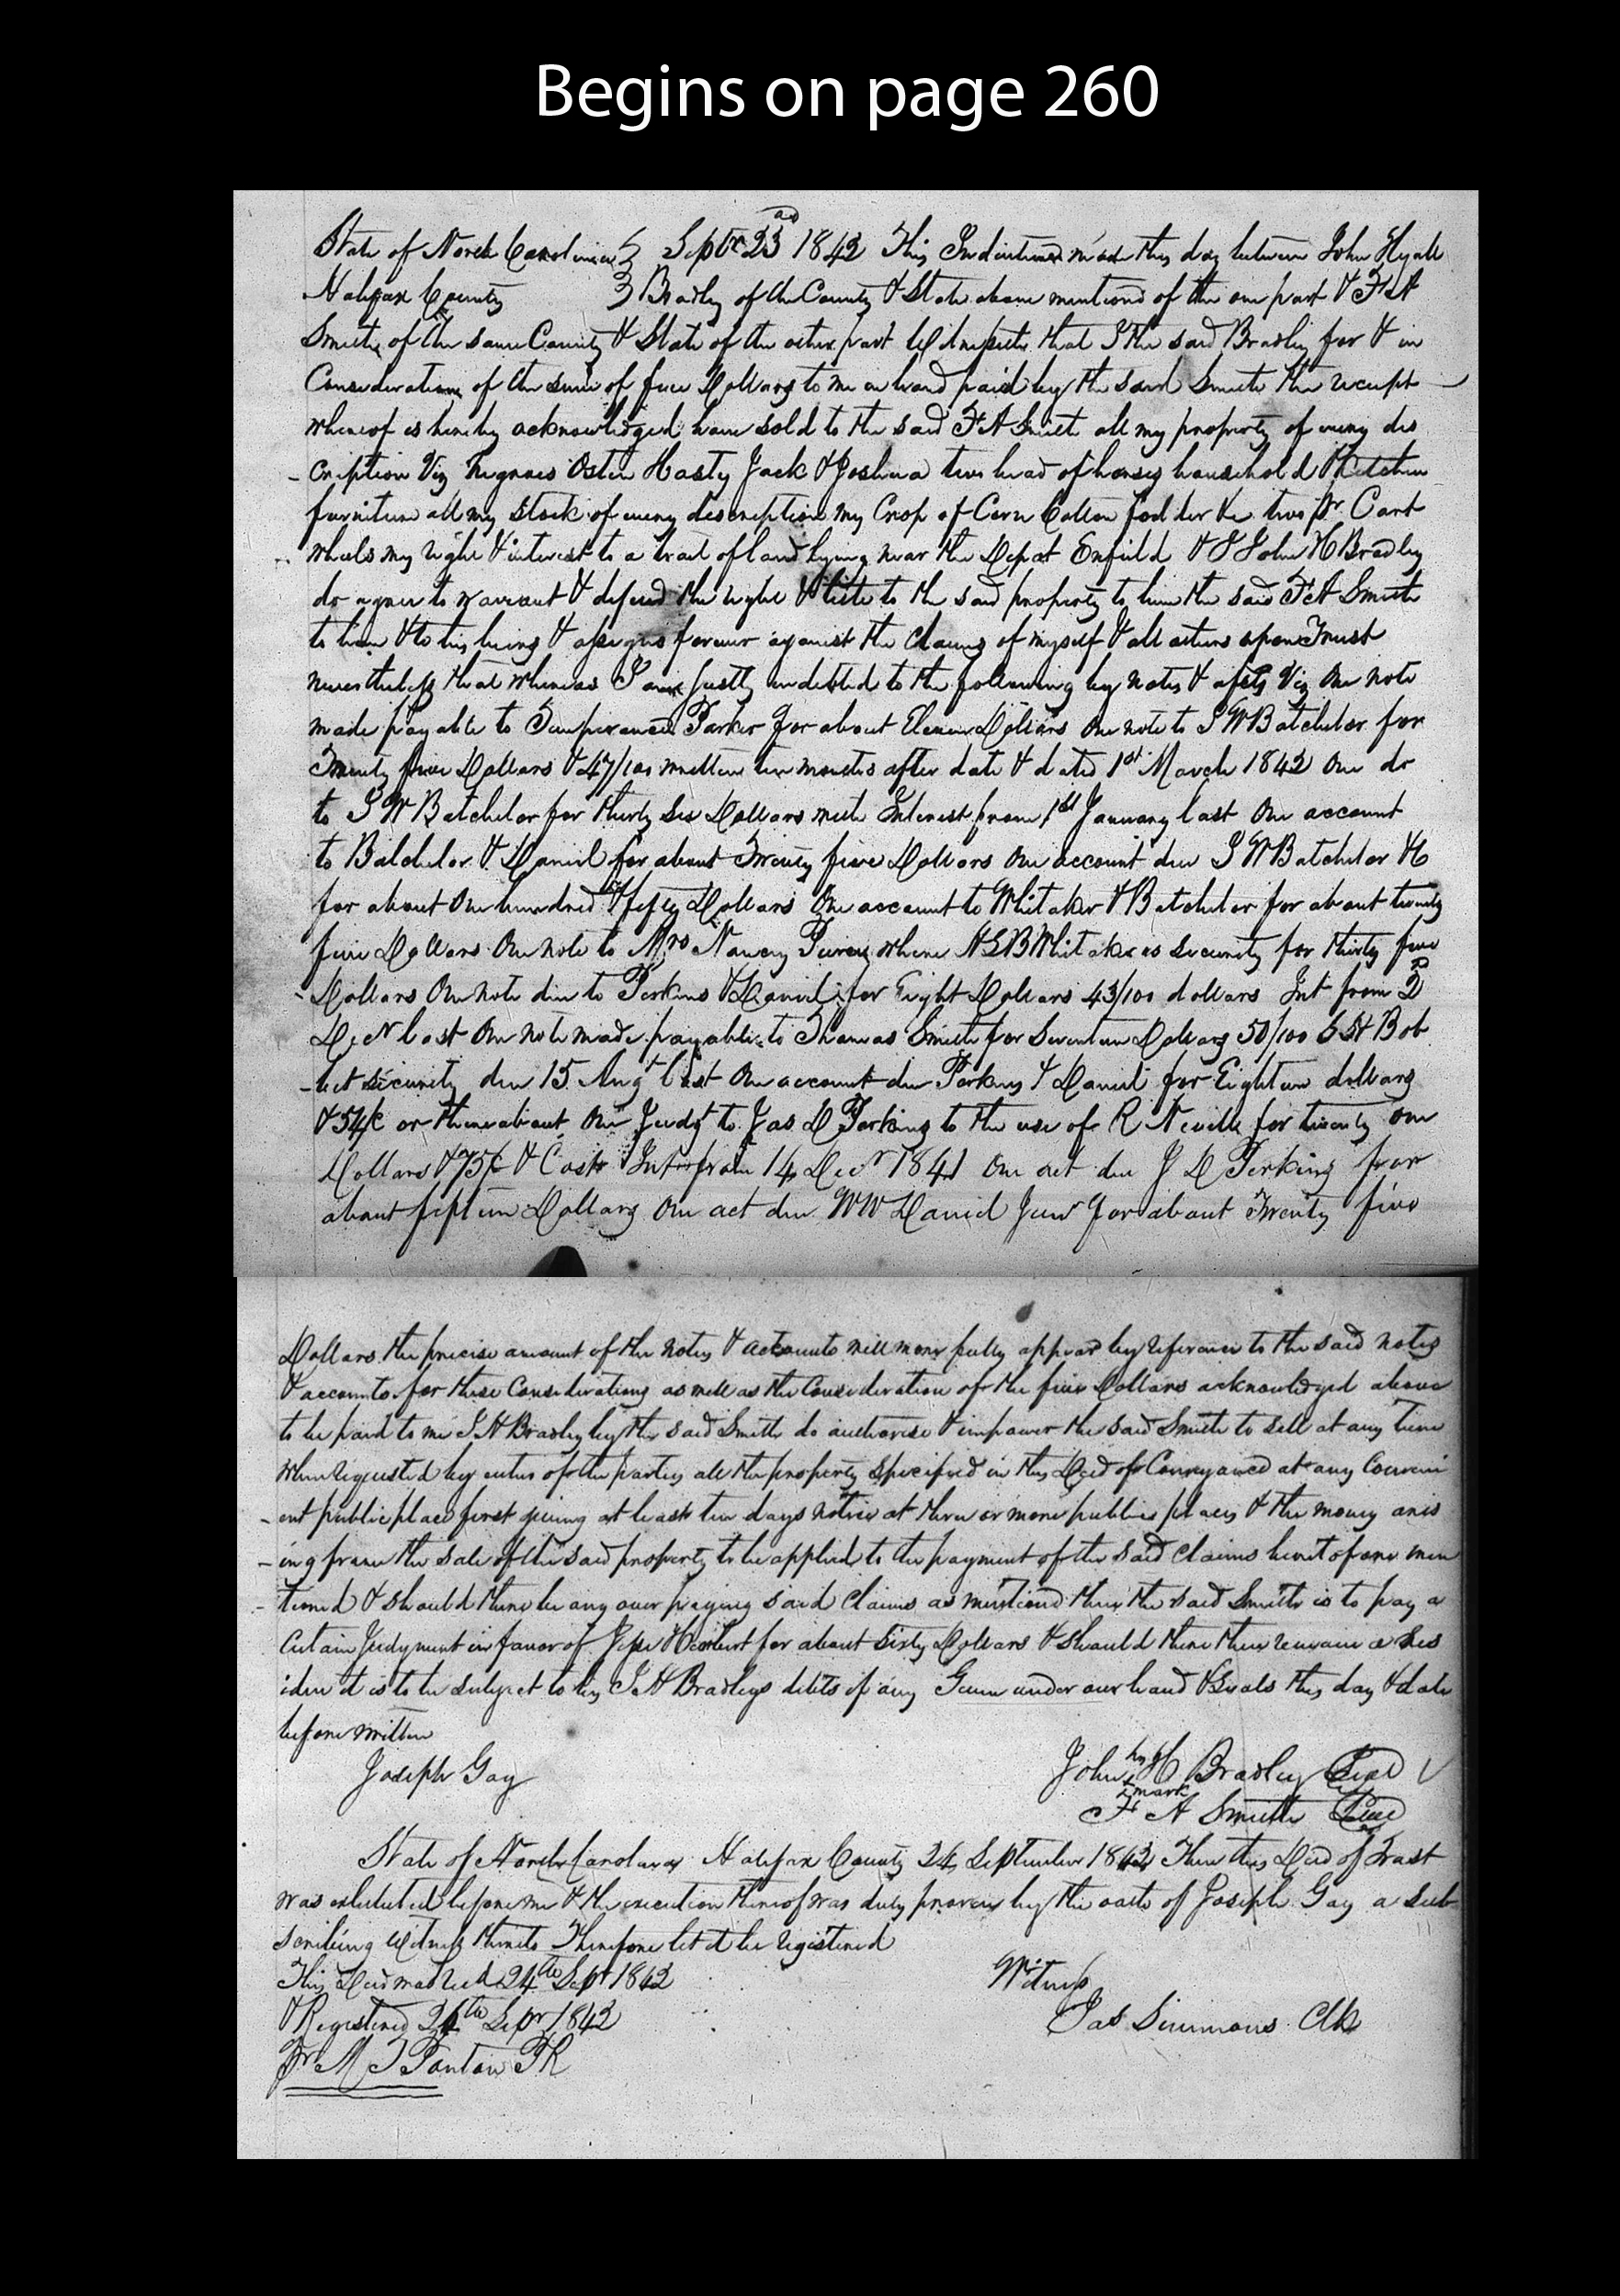 Begins on page 260
State of North Carolina Septr 23rd 1842 This Indenture made this day between John Hyatt
Halifax County Bradley of the County & State above mentioned of the one part & F A
Smith of the same County & State of the other part Witnesseth that I the said Bradley for & in
Consideration of the sum of five Dollars to me in hand paid by the said Smith the receipt
whereof is hereby acknowledged have sold to the said F A Smith all my property of every des
-cription Viz Negroes Osten Hasty Jack & Joshua two head of horses household & Kitchen
furniture all my stock of every description my Crop of Corn Cotton fodder &c two pr Cart
wheels my right & interest to a tract of land lying near the Depot Enfield & I John H Bradley
do agree to warrant & defend the right & title to the said property to him the said F A Smith
to him & to his heirs & assigns forever against the claims of myself & all others upon Trust
nevertheless that whereas I am justly indebted to the following by notes & accts Viz One note
made payable to Temperance Parker for about Eleven Dollars One note to J W Batchelor for
Twenty five Dollars & 47/100 written ten months after date & dated 1st March 1842 One do
to J W Batchelor for thirty six Dollars with Interest from 1st January last One account
to Batchelor & Daniel for about Twenty five Dollars One account due J W Batchelor & Co
for about One hundred & fifty Dollars One account to Whitaker & Batchelor for about twenty
five Dollars One note to Mrs Nancy where Whitaker is security for thirty five
-Dollars One note due to Perkins & Daniel for Eight Dollars 43/100 dollars Int from 2d
Decr last One note made payable to Thomas Smith for Seventeen Dollars 50/100 Bob
-bit security due 15 Augt last One account due Perkins & Daniel for Eighteen dollars
& 54/c or thereabout One Judgt to Jas D Perkins to the use of R Neville for twenty one
Dollars & 75/c & Cost Int from 14 Decr 1841 One act due J D Perkins for
about fifteen Dollars One act due W W Daniel Junr for about Twenty five
Dollars the precise amount of the notes & accounts will more fully appear by reference to the said notes
& accounts for these Considerations as well as the Consideration of the five Dollars acknowledged above
to be paid to me J H Bradley by the said Smith do authorise & impower the said Smith to sell at any time
when requested by either of the parties all the property specified in this Deed of Conveyance at any Conveni
-ent public place first giving at least ten days notice at three or more public places & the money aris
-ing from the sale of the said property to be applied to the payment of the said claims heretofore men
-tioned & should there be any over paying said Claims as mentioned then the said Smith is to pay a
Certain Judgment in favor of Jesse for about Sixty Dollars & should there then remain a Res
idue it is to be subject to by J H Bradleys debts if any Given under our hand & Seals this day & date
before written
Joseph Gay John his H Bradley Seal
mark
F A Smith Seal
State of North Carolina Halifax County 24 September 1842 Then this Deed of Trust
was exhibited before me & the execution thereof was duly proven by the oath of Joseph Gay a sub
scribing Witness thereto Therefore let it be registered
This Deed was Recd 24th Sept 1842 Witness
& Registered 26th Sepr 1842 Jas Simmons Clk
Pr M T Ponton PR